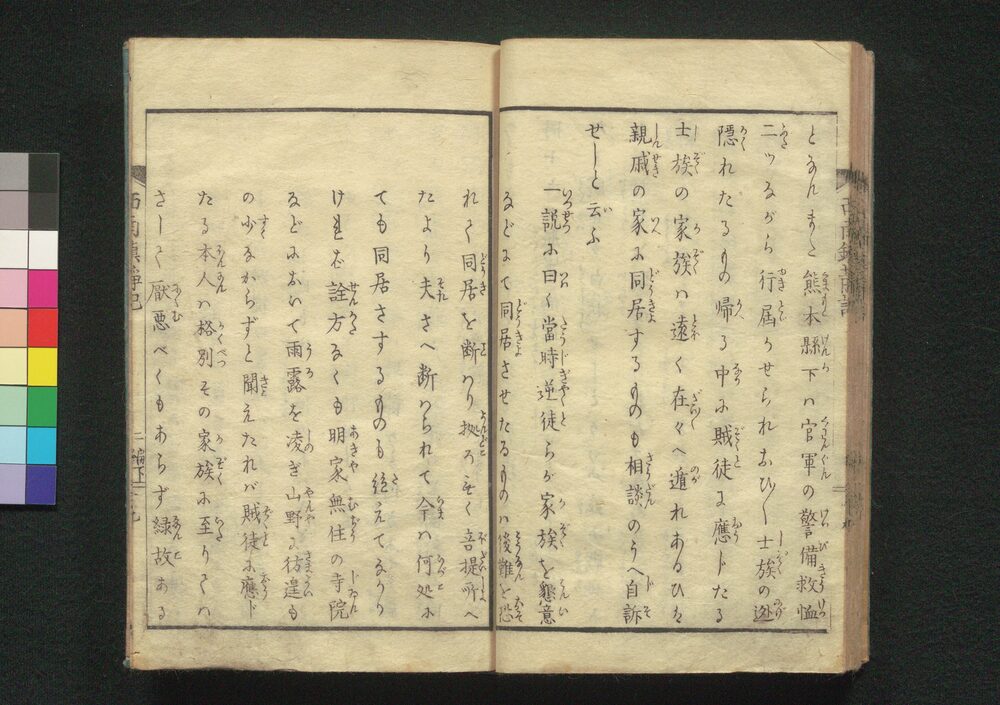 となんまた熊本縣下ハ官軍の警備救恤
二ツながら行屆かせられおひ〳〵士族の迯
隠れたるもの帰る中に賊徒に應じたる
士族の家族ハ遠く在々へ遁れあるひハ
親戚の家に同居するものも相談のうへ自訴
せしと云ふ
一説に曰く當時逆徒らが家族を懇意
などにて同居させたるものハ後難を恐
れて同居を断わり拠ろなく菩提所へ
たより夫さへ断わられて今ハ何処に
ても同居さするものも絶えてなか
けれバ詮方なくも明家無住の寺院
などにおいて雨露を凌ぎ山野に彷徨も
の少なからずと聞えたれバ賊徒に應じ
たる本人ハ格別その家族に至りてハ
さして厭悪べくもあらず縁故ある
西南鎮静記
二編下